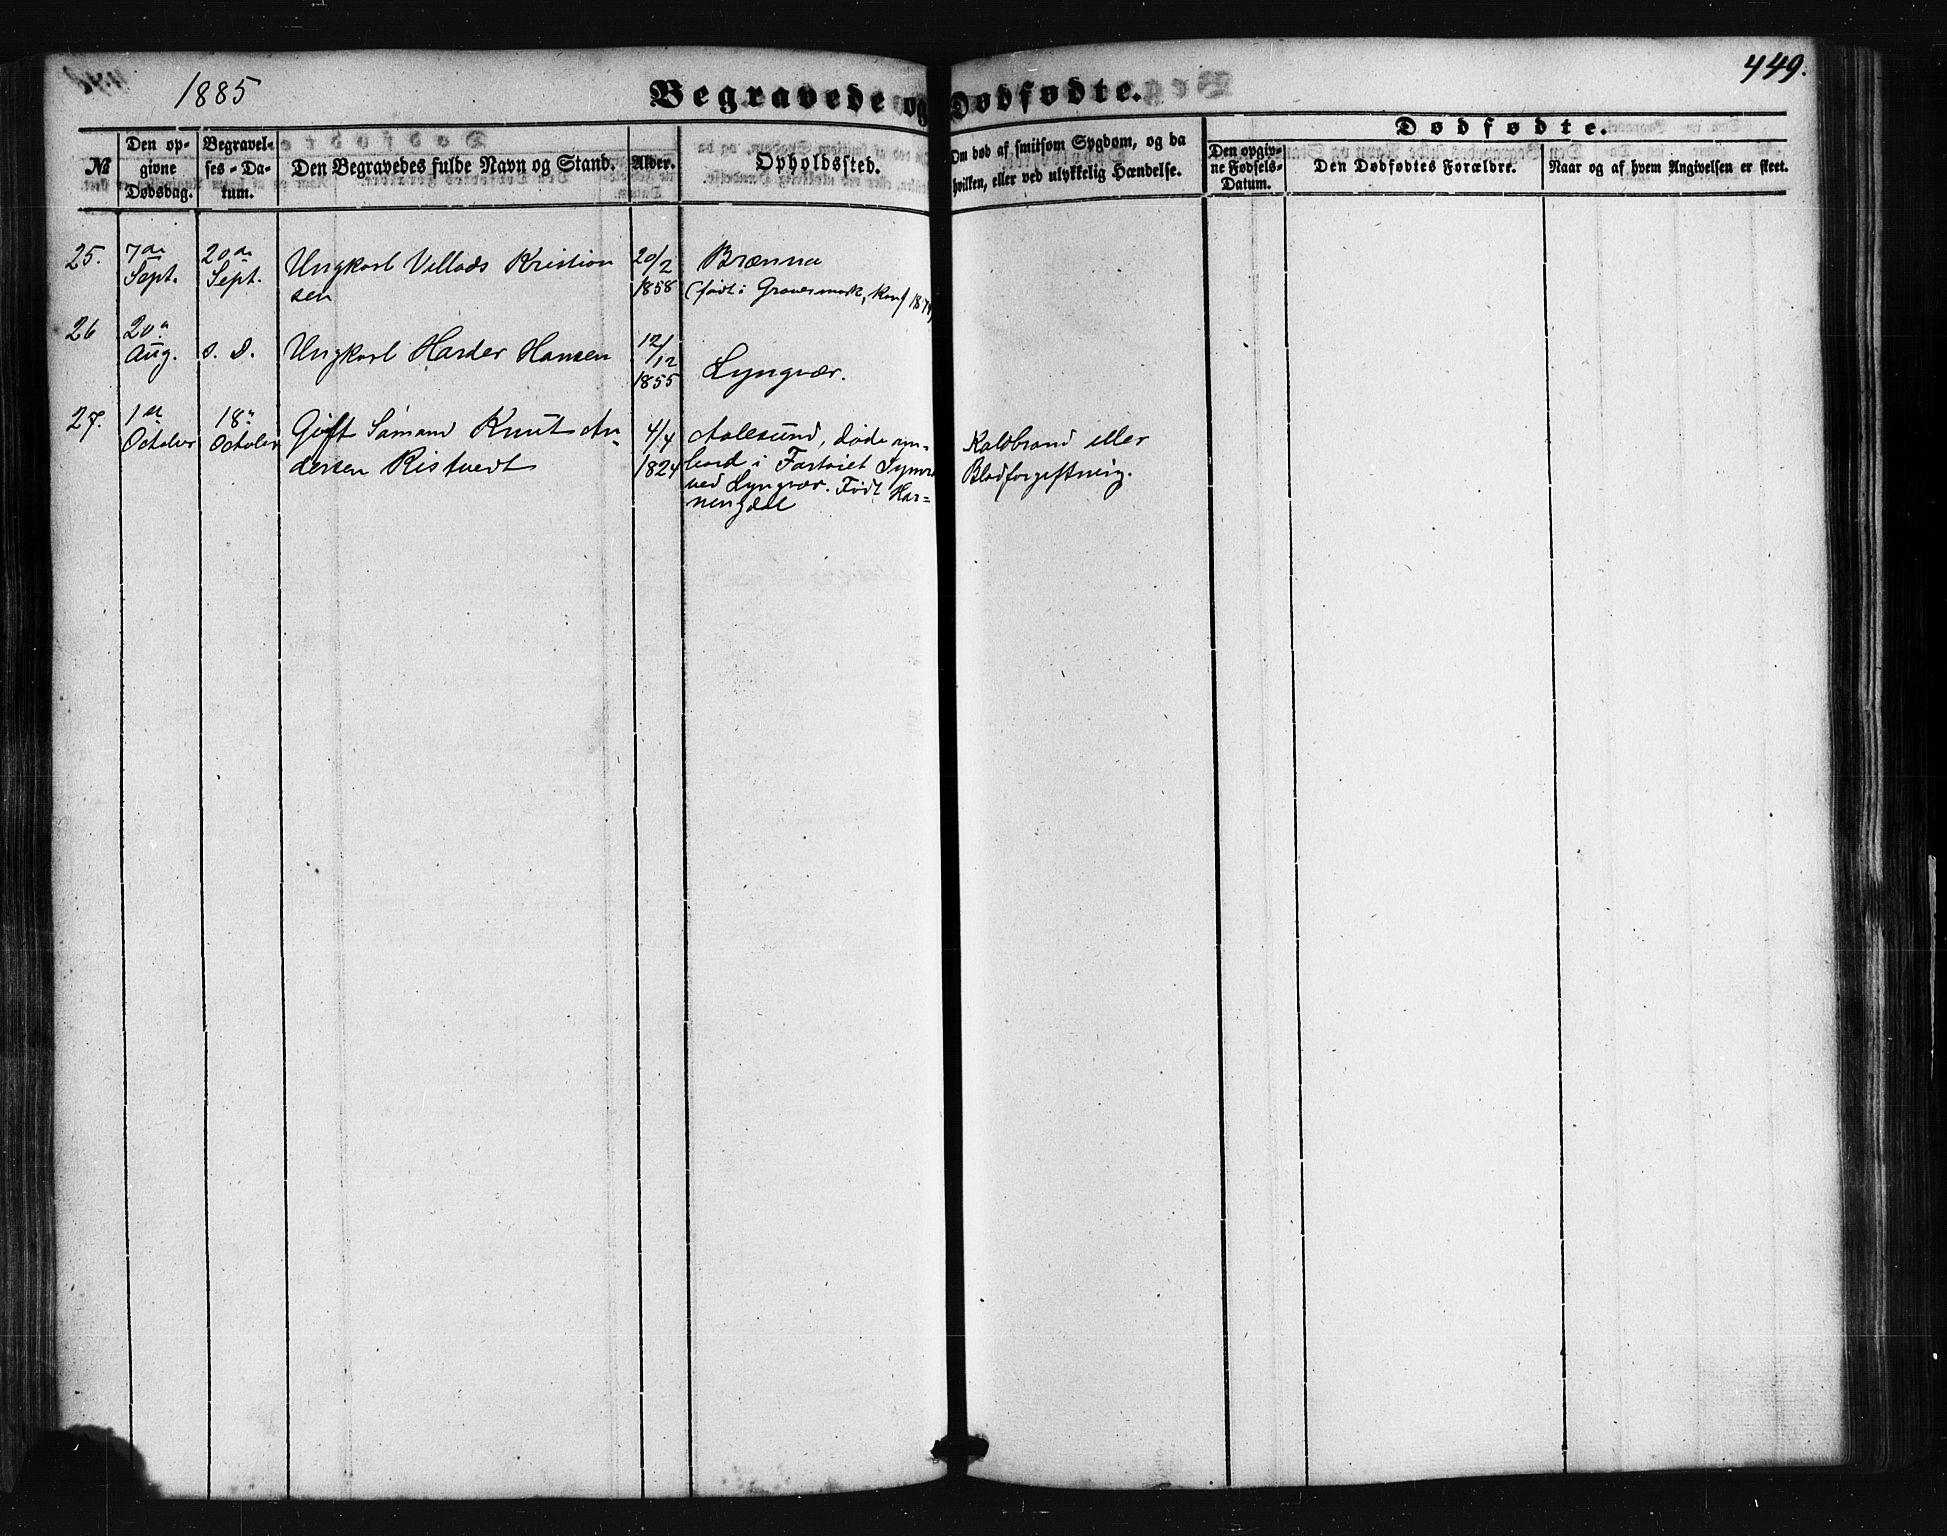 1885
449.
Begravede og Dødfødte.
Dødfødte.
№
Den op-
givne
Dødsdag.
Begravel-
ses-Da-
tum.
Den Begravedes fulde Navn og Stand.
Alder.
Opholdssted.
Om død af smitsom Sygdom, og da
hvilken, eller ved ulykkelig Hændelse.
Den opgiv-
ne Fødsels-
Datum.
Den Dødfødtes Forældre.
Naar og af hvem Angivelsen er skeet.
25.
7de
Sept.
20de
Sept.
Ungkarl Villads Kristian
sen
20/2
1858
Brænna
(født i Gravermark, Konf
26
20de
Aug.
s. D.
Ungkarl Harder Hansen
12/12
1855
Lyngvær.
27.
1ste
October
18de
October
Gift Sømand Knut An-
dersen Ristvedt
4/4
1824
Aalesund, døde om-
bord i Fartøiet
ved Lyngvær. Født Hor-
nengdal
Koldbrand eller
Blodforgiftning.